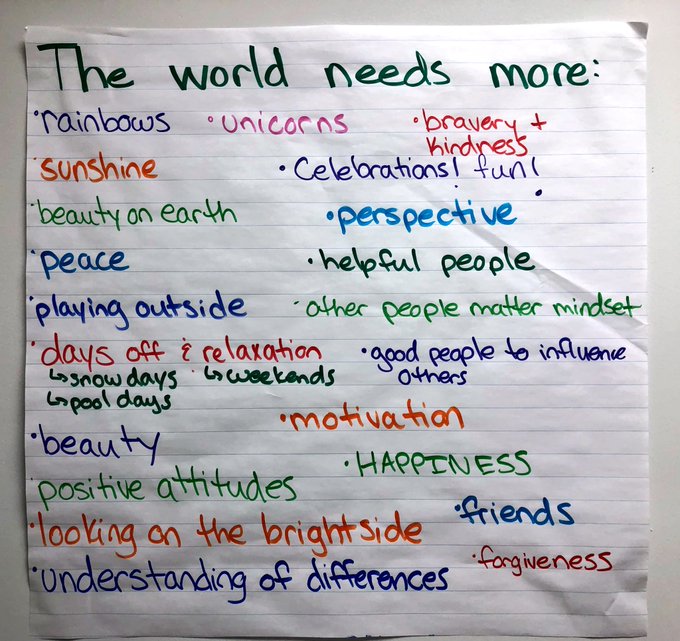 The world needs more:
•rainbows •unicorns •bravery + kindness
•sunshine •Celebrations! fun!
•beauty on earth •perspective
•peace •helpful people
•playing outside •other people matter mindset
•days off & relaxation •good people to influence others
↳snow days ↳weekends
↳pool days
•motivation
•beauty
•HAPPINESS
•positive attitudes
•friends
•looking on the brightside
•forgiveness
•understanding of differences